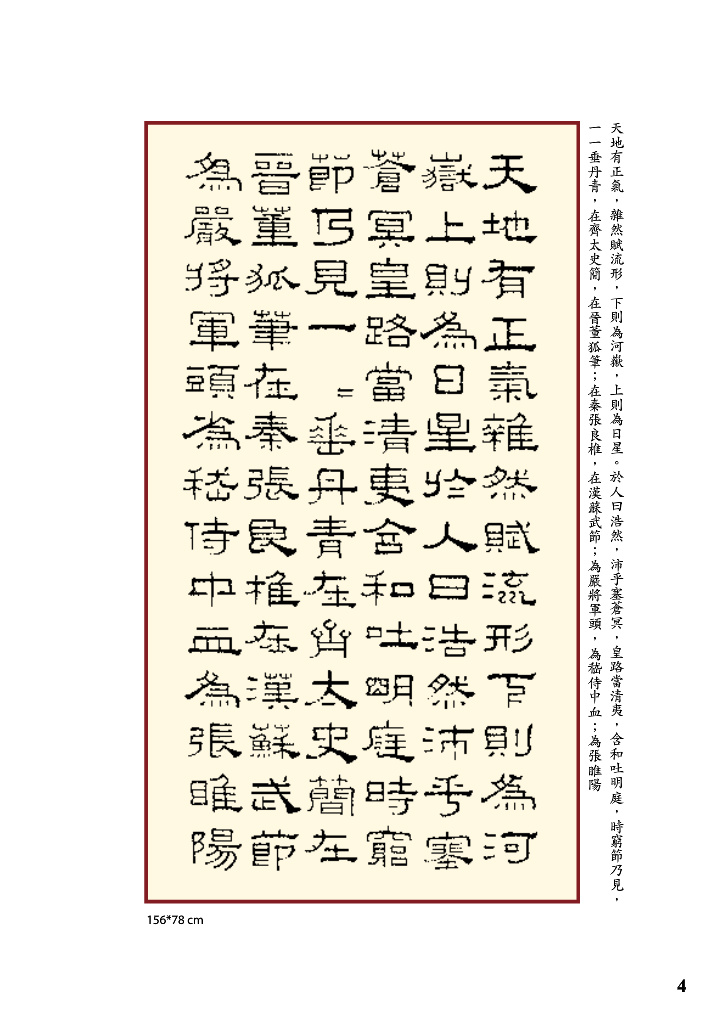 天地有正氣，雜然賦流形，下則為河嶽，上則為日星。於人曰浩然，沛乎塞蒼冥，皇路當清夷，含和吐明庭，時窮節乃見，
一一垂丹青，在齊太史簡，在晉董狐筆；在秦張良椎，在漢蘇武節；為嚴將軍頭，為嵇侍中血；為張睢陽
天地有正氣雜然賦流形下則為河
嶽上則為日星於人曰浩然沛乎塞
蒼冥皇路當清夷含和吐明庭時窮
節乃見一=垂丹青在齊太史簡在
晉董狐筆在秦張良椎在漢蘇武節
為嚴將軍頭為嵇侍中血為張睢陽
156*78 cm
4